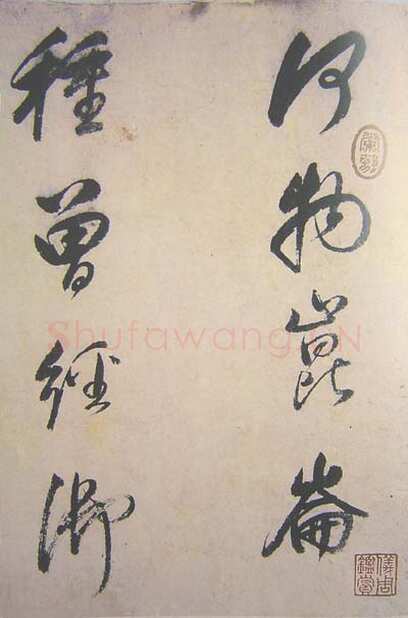 何物崑崙
種曾經御
儀周鑑賞
Shufawang.CN